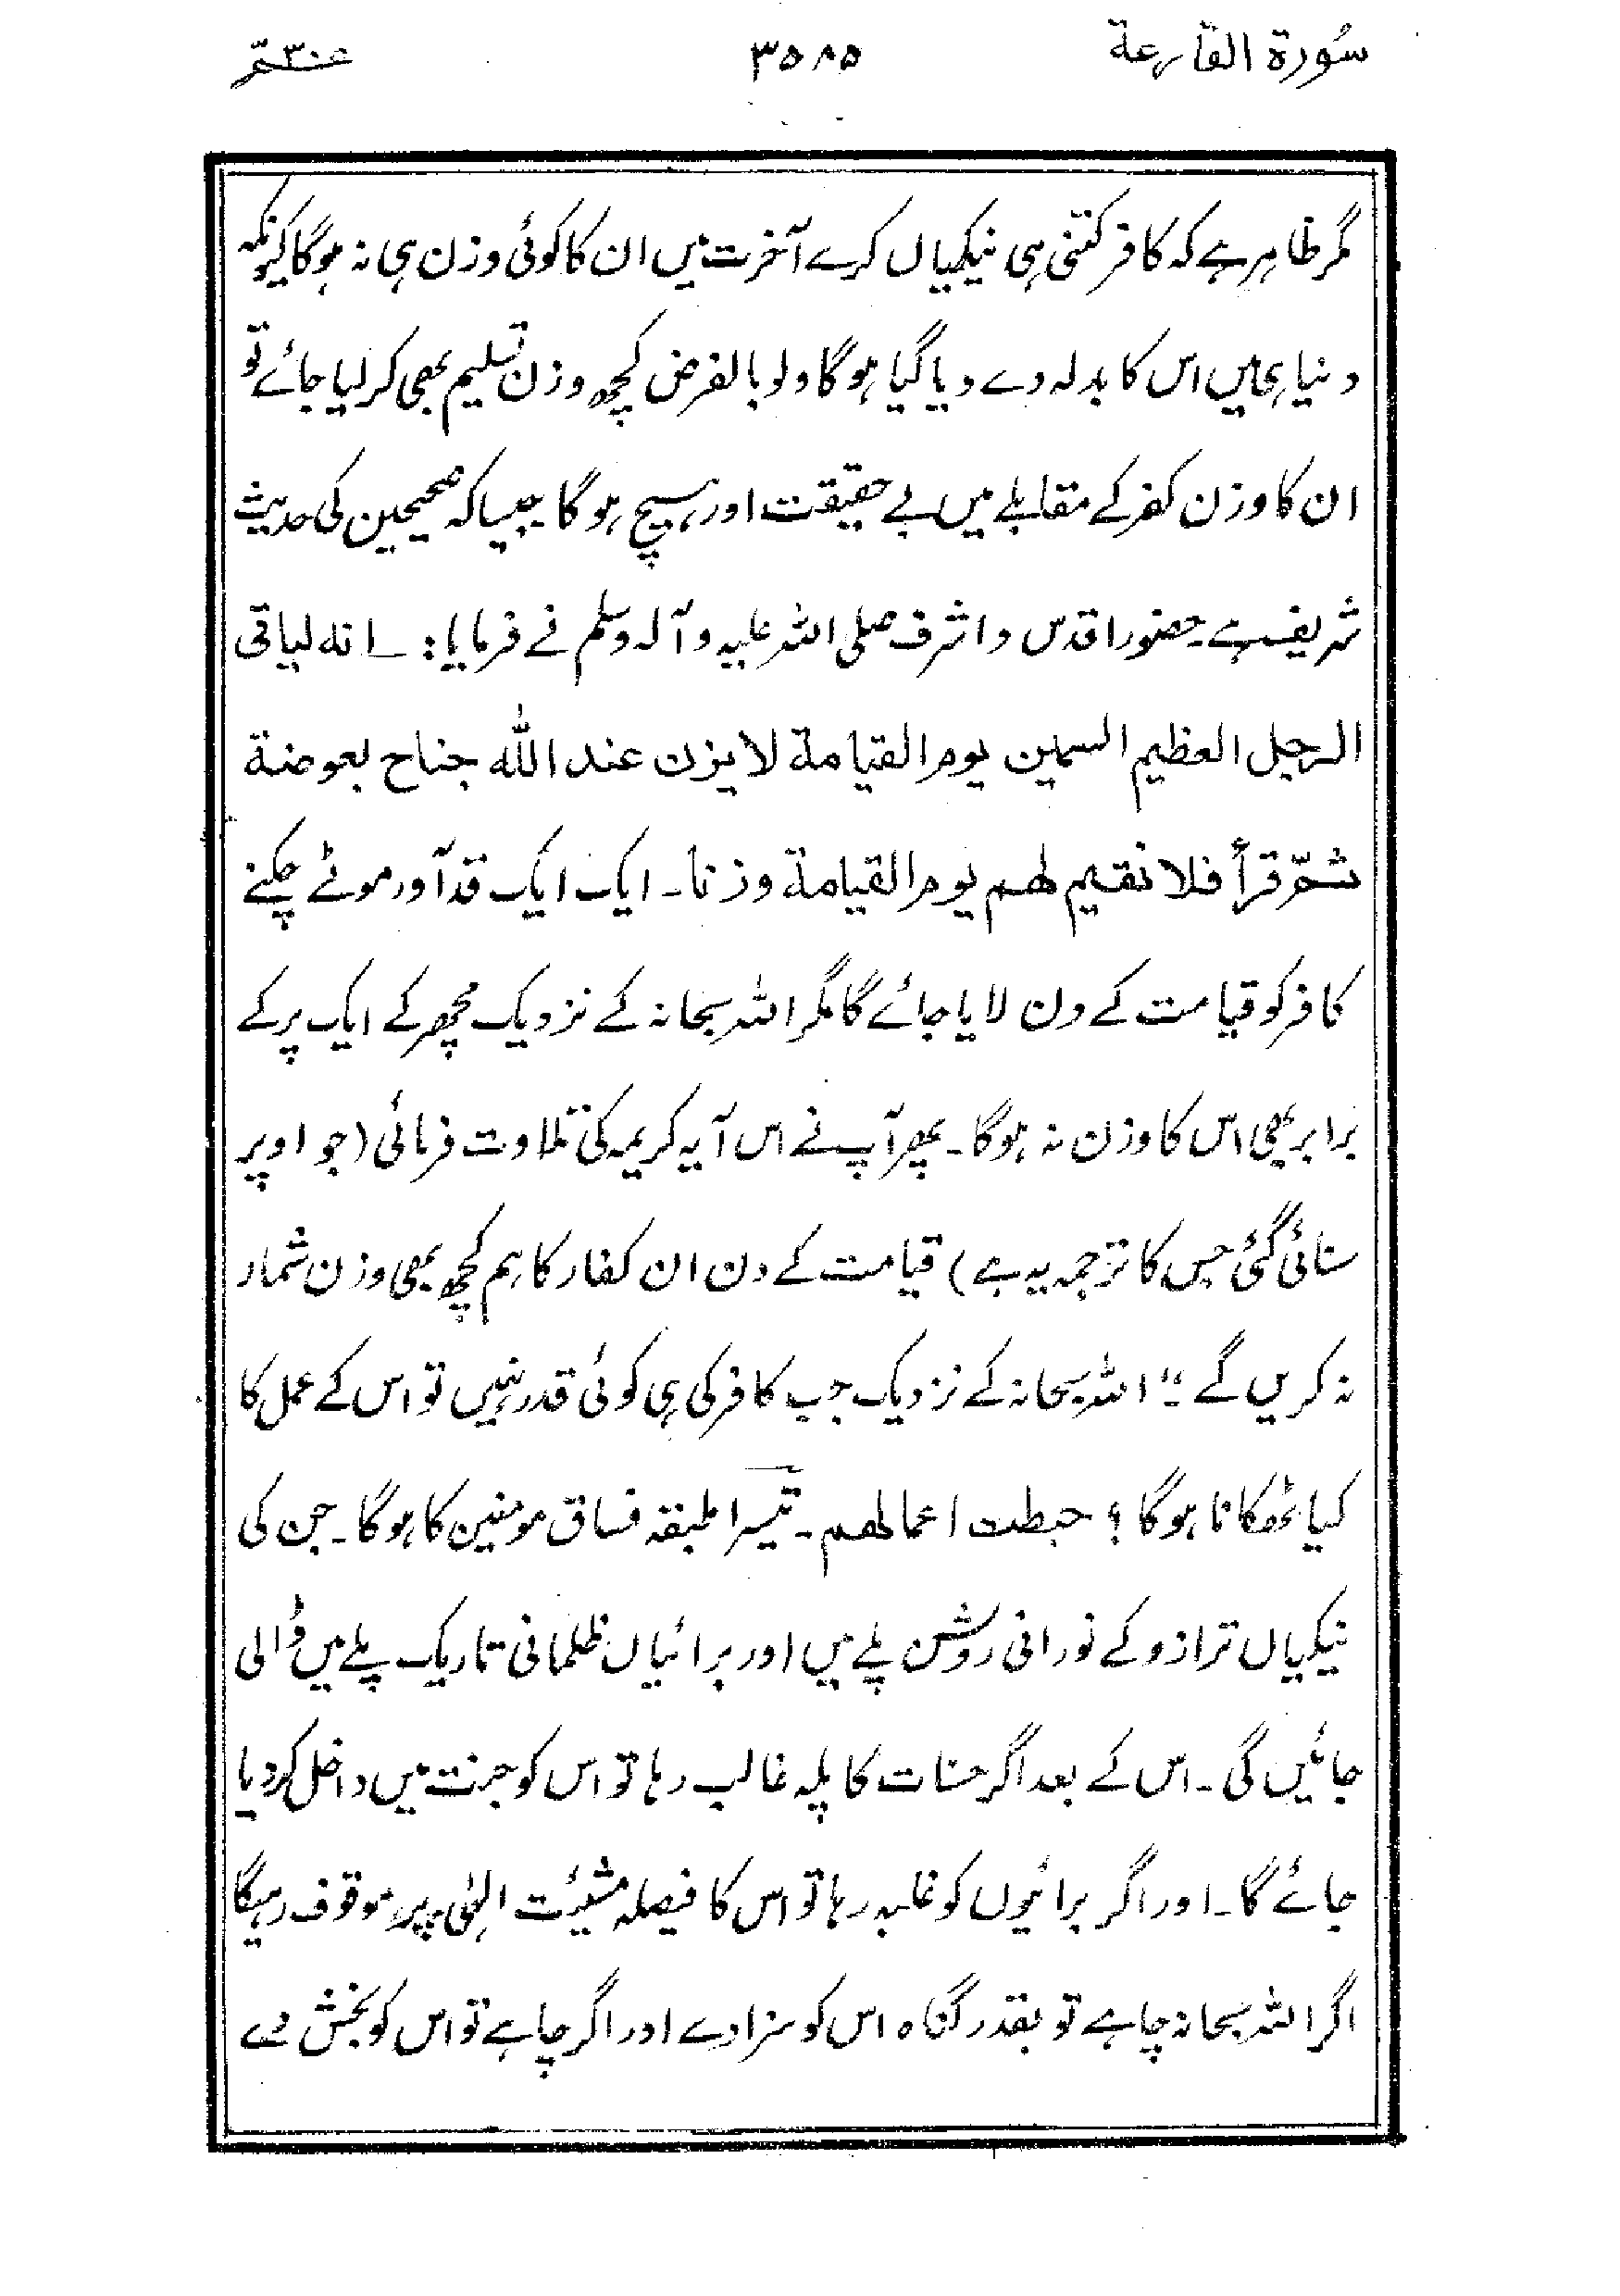 سُورة القارعة
۳۵۸۵
عم ۳۰
مگر ظاہر ہے کہ کافر کتنی ہی نیکیاں کرے آخرت میں ان کا کوئی وزن ہی نہ ہوگا کیونکہ
دنیا ہی میں اس کا بدلہ دے دیا گیا ہوگا ولو بالفرض کچھ وزن تسلیم بھی کر لیا جائے تو
ان کا وزن کفر کے مقابلے میں بے حقیقت اور ہیچ ہوگا جیسا کہ صحیحین کی حدیث
شریف ہے۔ حضور اقدس واشرف صلی اللہ علیہ وآلہ وسلم نے فرمایا: انه لياتى
الرجل العظيم السمين يوم القيامة لا يزن عند الله جناح بعوضة
ثمّ قرأ فلا نقيم لهم يوم القيامة وزنا۔ ایک ایک قد آور موٹے چکنے
کافر کو قیامت کے دن لایا جائے گا مگر اللہ سبحانہ کے نزدیک مچھر کے ایک پر کے
برابر بھی اس کا وزن نہ ہوگا۔ پھر آپ نے اس آیہ کریمہ کی تلاوت فرمائی (جو اوپر
سنائی گئی جس کا ترجمہ یہ ہے) قیامت کے دن ان کفار کا ہم کچھ بھی وزن شمار
نہ کریں گے۔" اللہ سبحانہ کے نزدیک جب کافر کی ہی کوئی قدر نہیں تو اس کے عمل کا
کیا ٹھکانا ہوگا؟ حبطت اعمالهم۔ تیسرا طبقہ فساق مومنین کا ہوگا۔ جن کی
نیکیاں ترازو کے نورانی روشن پلے میں اور برائیاں ظلمانی تاریک پلے میں ڈالی
جائیں گی۔ اس کے بعد اگر حسنات کا پلہ غالب رہا تو اس کو جنت میں داخل کر دیا
جائے گا۔ اور اگر برائیوں کو غلبہ رہا تو اس کا فیصلہ مشیئت الٰہی پر موقوف رہیگا
اگر اللہ سبحانہ چاہے تو بقدر گناہ اس کو سزا دے اور اگر چاہے تو اس کو بخش دے